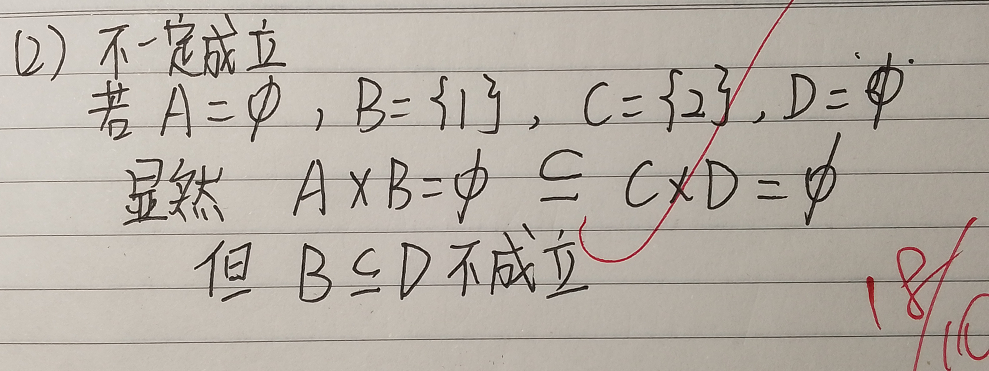 (2) 不一定成立
若 A=∅, B={1}, C={2}, D=∅
显然 A×B=∅ ⊆ C×D=∅
但 B⊆D 不成立
18/10